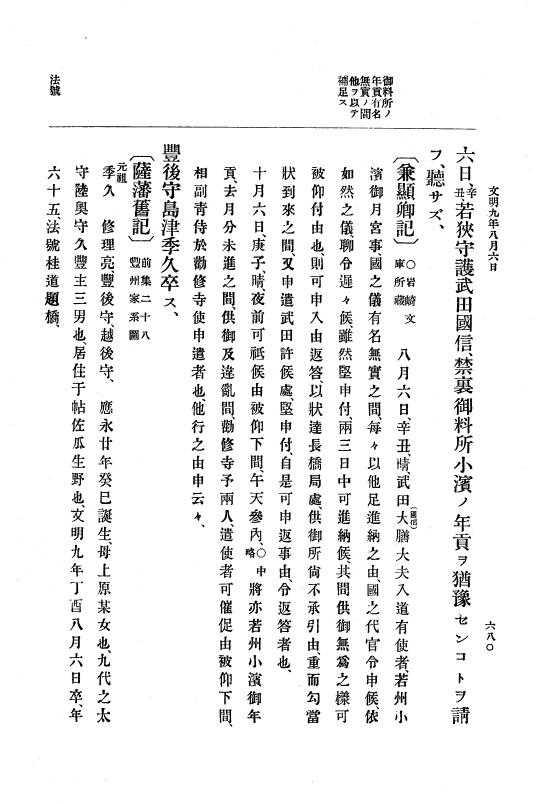 文明九年八月六日
六八〇
六日、辛丑若狹守護武田國信、禁裏御料所小濱ノ年貢ヲ猶豫センコトヲ請
フ、聽サズ、
御料所ノ
年貢有名
無實ノ間
他ヲ以テ
補足ス
〔兼顯卿記〕 ○岩崎文庫所藏 八月六日、辛丑、晴、武田大膳大夫入道(國信)有使者、若州小
濱御月宮事、國之儀有名無實之間、每々以他足進納之由、國之代官令申候、依
如然之儀、聊令遲々候、雖然堅申付、兩三日中可進納候、其間供御無爲之樣可
被仰付由也、則可申入由返答、以狀達長橋局處、供御所尙不承引由、重而勾當
狀到來之間、又申遣武田許候處、堅申付、自是可申返事由、令返答者也、
十月六日、庚子、晴、夜前可祗候由被仰下間、午天參內、○中略將亦若州小濱御年
貢、去月分未進之間、供御及違亂間、勸修寺予兩人、遣使者可催促由被仰下間、
相副靑侍於勸修寺使申遣者也、他行之由申云々、
豐後守島津季久卒ス、
〔薩藩舊記〕 前集二十八豐州家系圖
元祖
季久 修理亮、豐後守、越後守、 應永廿年癸巳誕生、母上原某女也、九代之太
守陸奧守久豐主三男也、居住于帖佐瓜生野也、文明九年丁酉八月六日卒、年
法號
六十五、法號桂道題橋、